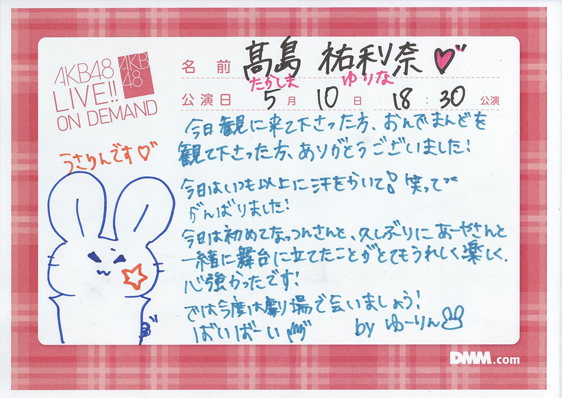 AKB48
LIVE!!
ON DEMAND
AKB
48
名前 髙島 祐利奈
たかしま ゆりな
公演日 5月10日 18:30公演
うさりんです♡
今日観に来て下さった方、おんでまんどを
観て下さった方、ありがとうございました!
今日はいつも以上に汗をかいて!笑って
がんばりました!
今日は初めてなっつんさんと、久しぶりにあーやさんと
一緒に舞台に立てたことがとてもうれしく楽しく、
心強かったです!
では今度は劇場で会いましょう!
ばいばーい
by ゆーりん
DMM.com